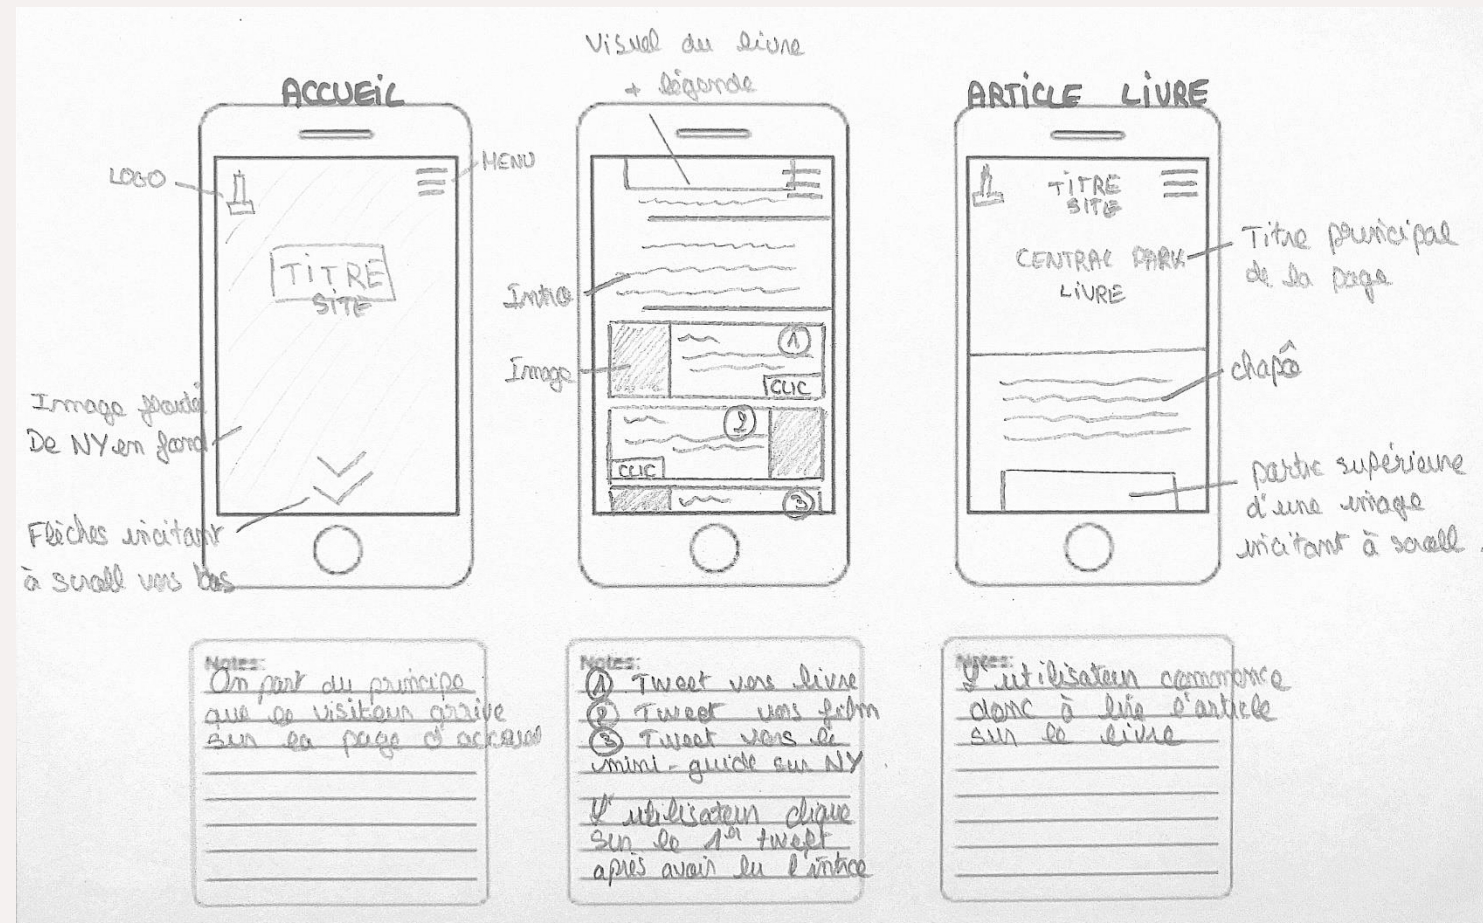 ACCUEIL
LOGO
MENU
TITRE
SITE
Image
De NY en fond
Flèches incitant
à scroll vers bas
Notes:
On part du principe
que le visiteur arrive
sur la page d'accueil
Visuel du livre
+ légende
Intro
Image
1
CLIC
2
CLIC
3
Notes:
1 Tweet vers livre
2 Tweet vers film
3 Tweet vers le
mini-guide sur NY
L'utilisateur clique
sur le 1er tweet
après avoir lu l'intro
ARTICLE LIVRE
TITRE
SITE
CENTRAL PARK
LIVRE
Titre principal
de la page
chapô
partie supérieure
d'une image
incitant à scroll
Notes:
L'utilisateur commence
donc à lire l'article
sur le livre